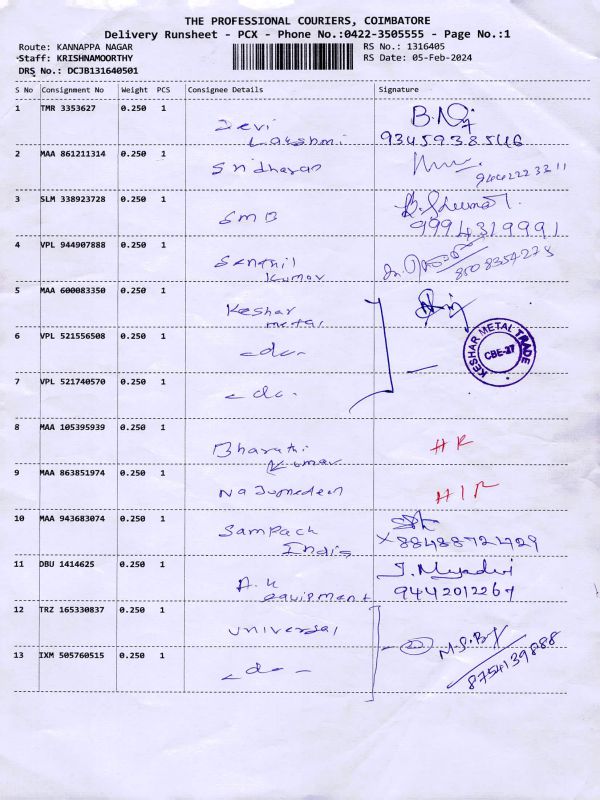 THE PROFESSIONAL COURIERS, COIMBATORE
Delivery Runsheet - PCX - Phone No.:0422-3505555 - Page No.:1
Route: KANNAPPA NAGAR
RS No.: 1316405
Staff: KRISHNAMOORTHY
RS Date: 05-Feb-2024
DRS No.: DCJB131640501
S No Consignment No Weight PCS Consignee Details Signature
1 TMR 3353627 0.250 1
Devi
Lakshmi 9345938546
2 MAA 861211314 0.250 1 Sridharan
3 SLM 338923728 0.250 1
SMB 9994319991
4 VPL 944907888 0.250 1 Senthil
Kumar 8508357278
5 MAA 600083350 0.250 1 Keshar
metal
KESHAR METAL TRADE
CBE-27
6 VPL 521556508 0.250 1 -do-
7 VPL 521740570 0.250 1 -do-
8 MAA 105395939 0.250 1
Bharathi
Kumar
9 MAA 863851974 0.250 1
10 MAA 943683074 0.250 1
Sampack
India
11 DBU 1414625 0.250 1
A.K
equipment 9442012267
12 TRZ 165330837 0.250 1
Universal
13 IXM 505760515 0.250 1 -do-
8754139888